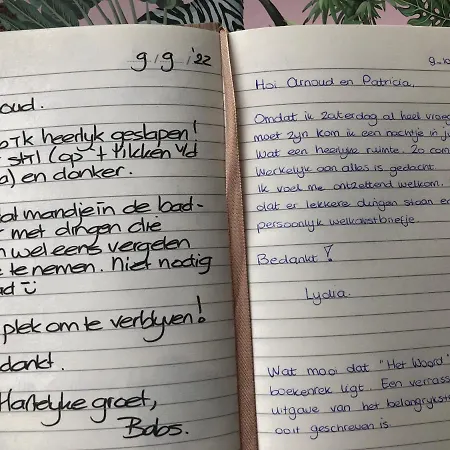 9/9/'22
oud.
Ik heerlijk geslapen!
stil (op 't tikken v/d
a) en donker.
mandje in de bad-
met dingen die
wel eens vergelen
te nemen. Niet nodig
plek om te verblyven!
dankt.
Hartelyke groet,
Babs.
9-10
Hoi Arnoud en Patricia,
Omdat ik zaterdag al heel vroeg
moet zyn kom ik een nachtje in ju
Wat een heerlyke ruimte. Zo com
Werkelyk aan alles is gedacht.
Ik voel me ontzettend welkom.
dat er lekkere dingen staan en
persoonlyk welkomstbriefje.
Bedankt!
Lydia.
Wat mooi dat "Het Woord"
boekenrek ligt. Een verrass
uitgave van het belangrykste
ooit geschreven is.